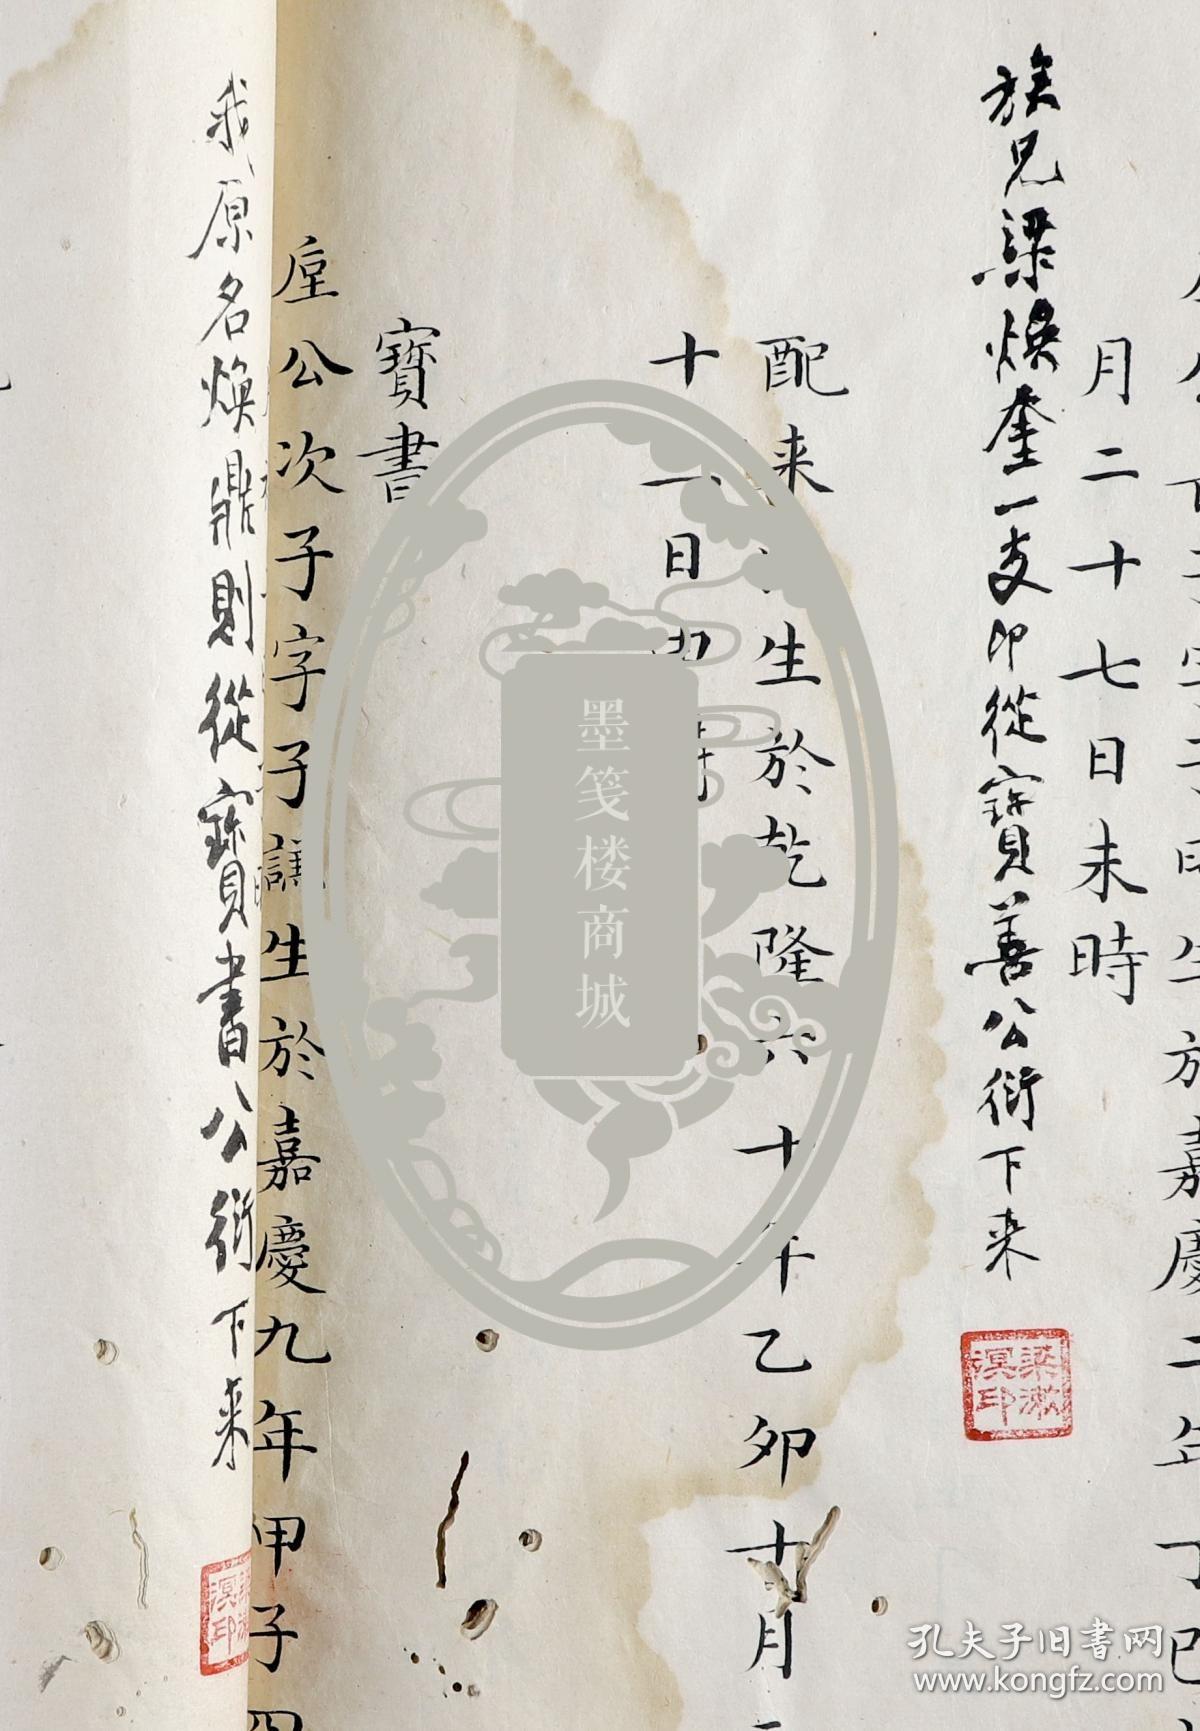 生於嘉慶二年丁巳
月二十七日未時
族兄梁焕奎一支印從寶善公衍下来
梁漱溟印
配
生於乾隆六十年乙卯十月
十
日
寶書
公次子字子譙生於嘉慶九年甲子四
我原名焕鼎則從寶書公衍下来
梁漱溟印
墨笺楼商城
孔夫子旧书网
www.kongfz.com